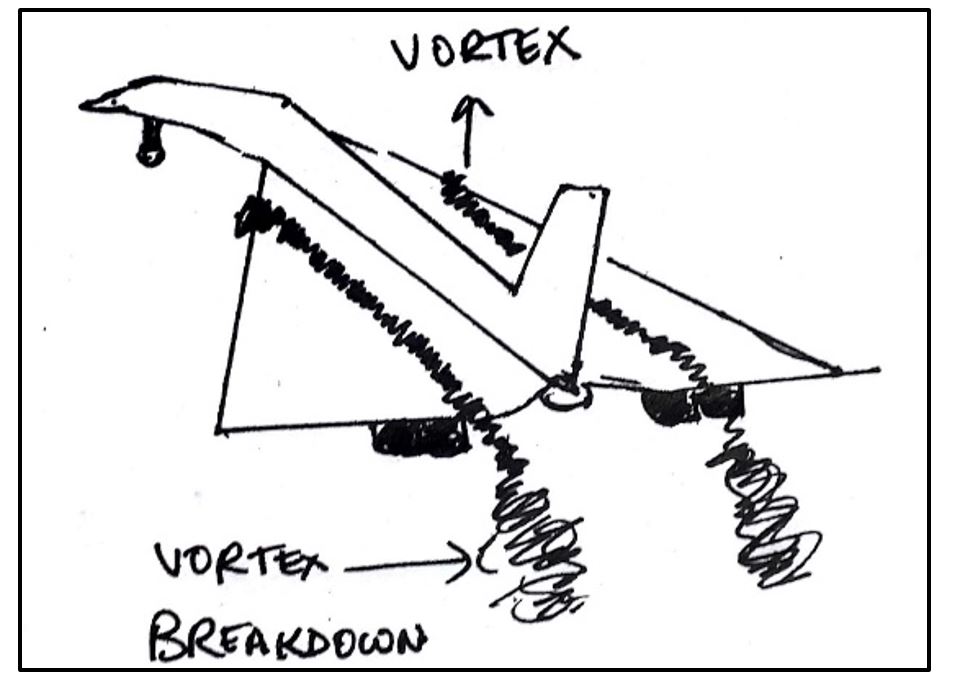 VORTEX
VORTEX
BREAKDOWN